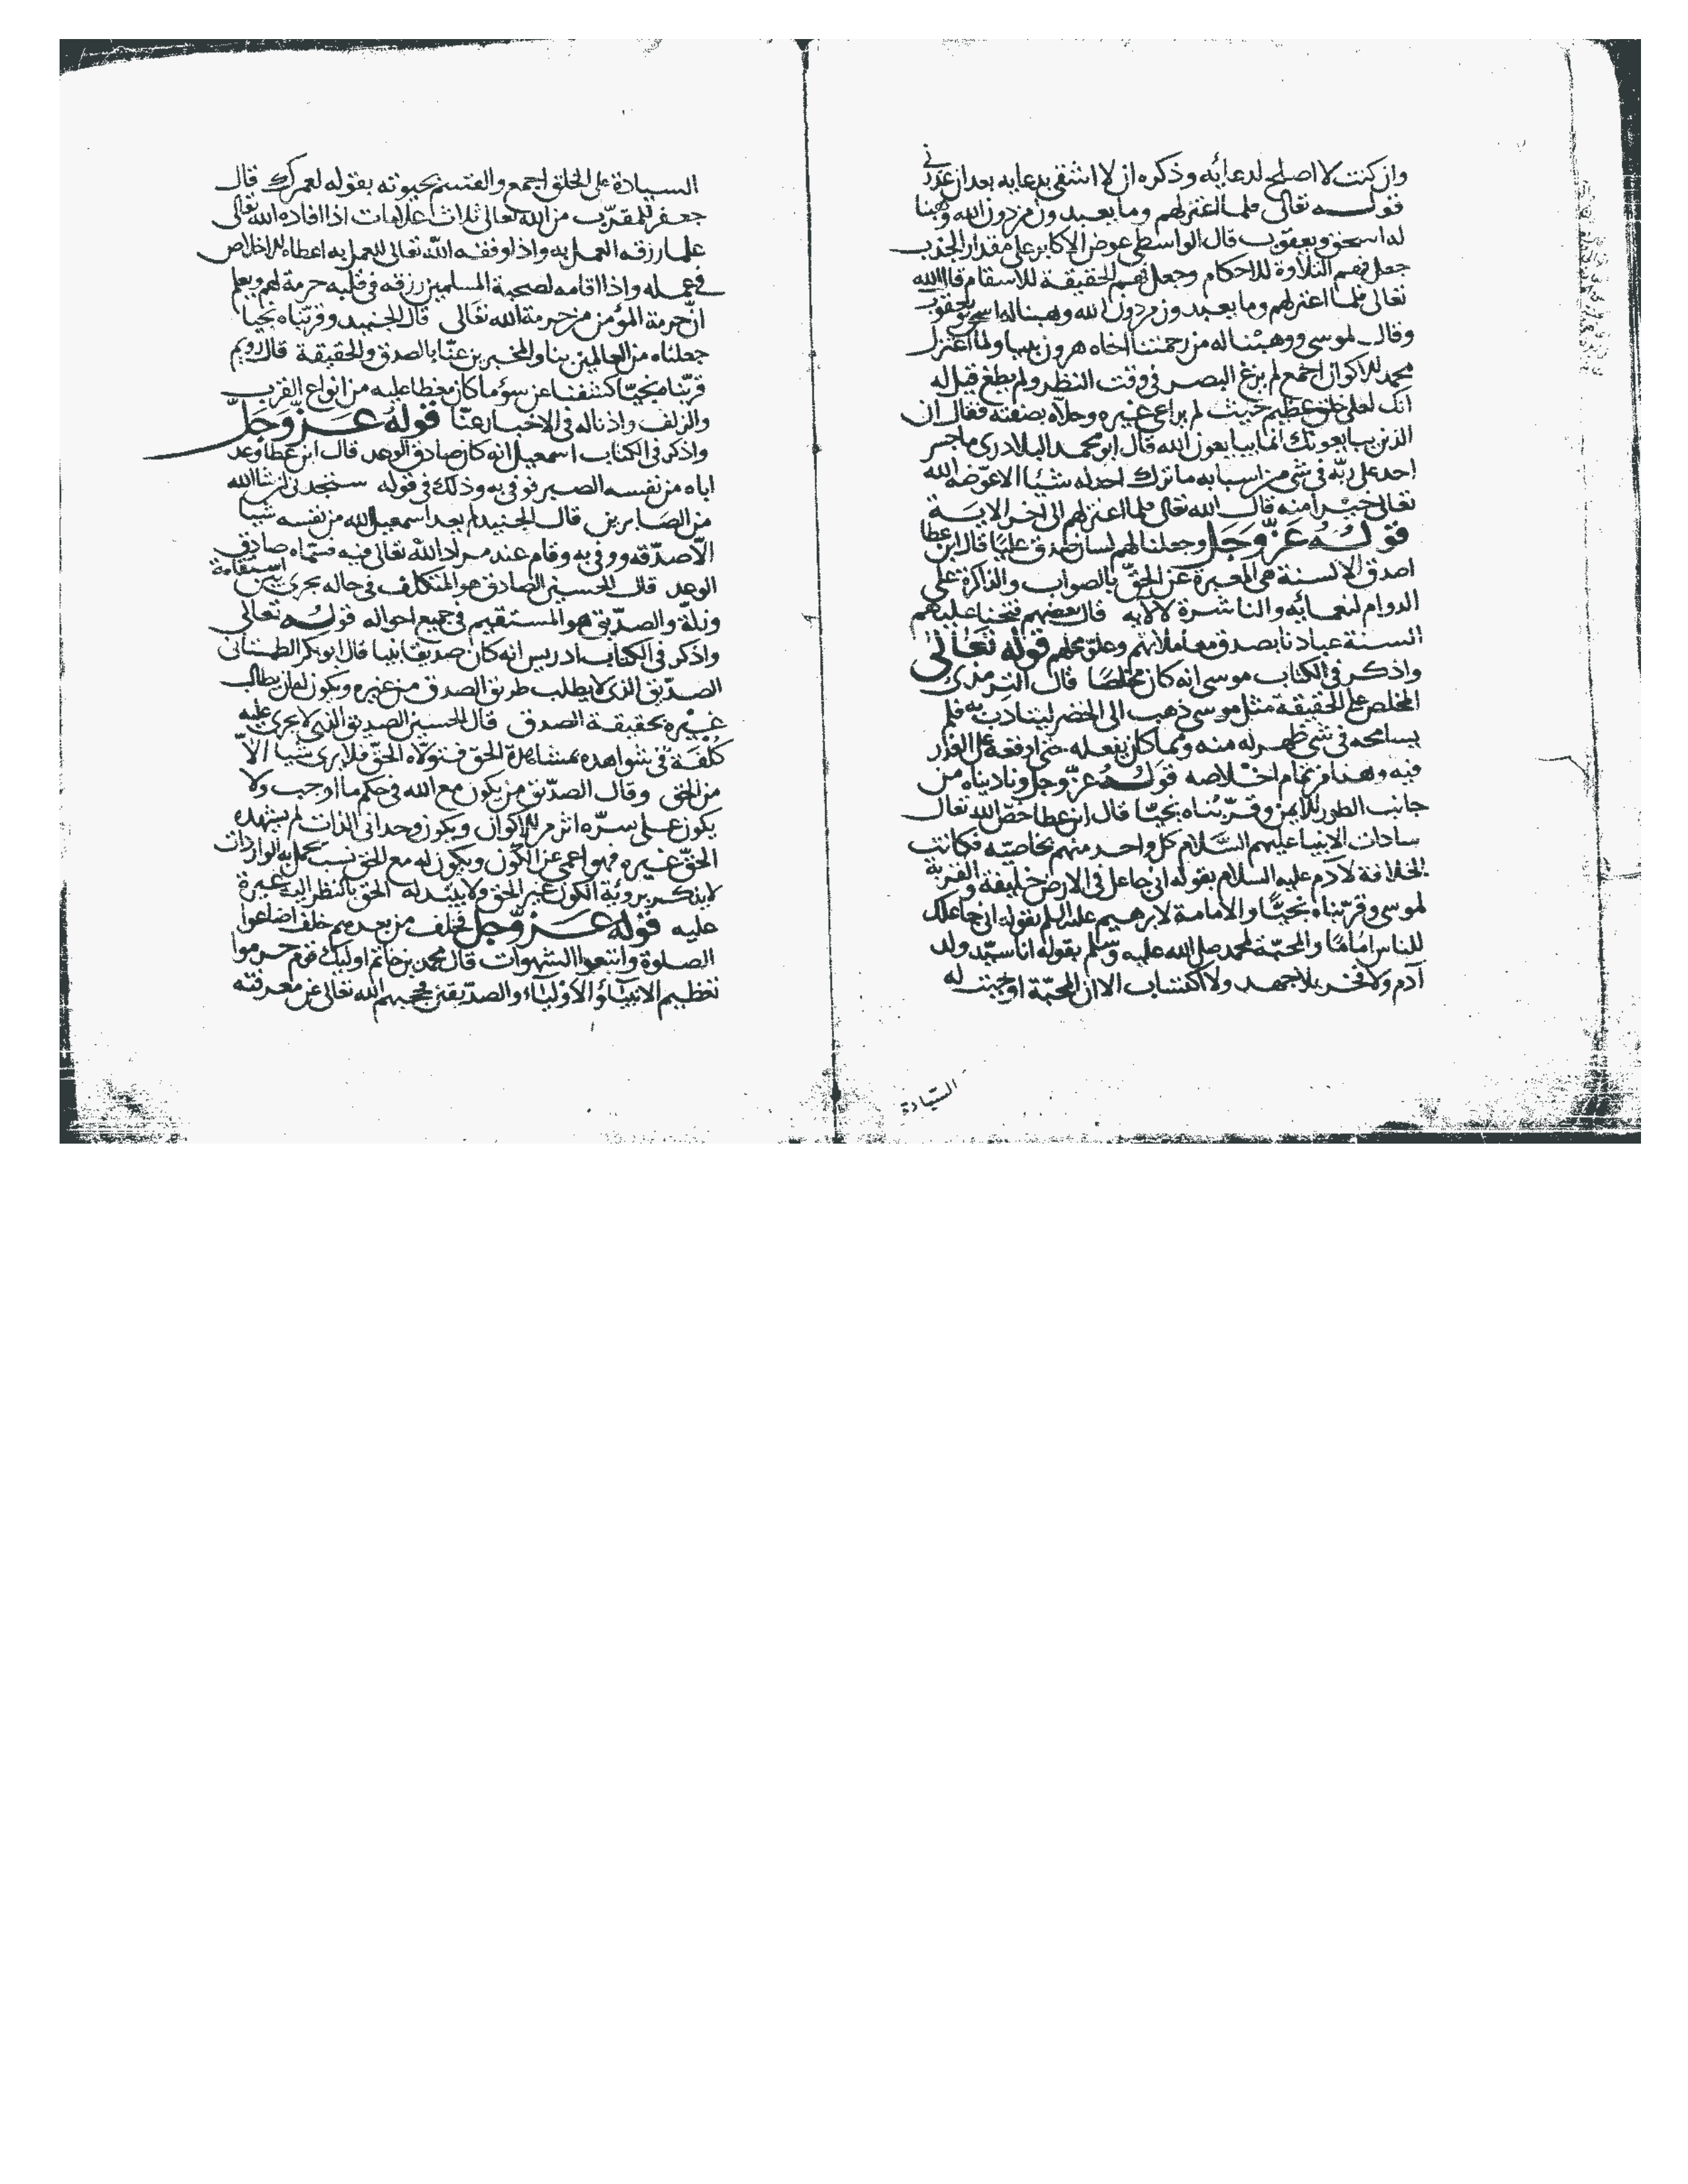 وان كنت لا اصلح لدعائه وذكره ان لا اشقى بدعايه بعد ان عذرنى
قولـــه تعالى فلما اعتزلهم وما يعبدون من دون الله وهبنا
له اسحق ويعقوب قال الواسطى عوض الاكابر على مقدار الجذب
جعل فهم التلاوة للاحكام وجعل فهم الحقيقة للاسقام قال الله
تعالى فلما اعتزلهم وما يعبدون من دون الله وهبنا له اسحق ويعقوب
وقال لموسى ووهبنا له من رحمتنا اخاه هرون نبيا ولما اعتزل
محمد الاكوان اجمع لم يزغ البصر فى وقت النظر ولم يطغ قيل له
انك لعلى خلق عظيم حيث لم يراعى غيره وحلاه بصفته فقال ان
الذين يبايعونك انما يبايعون الله قال ابو محمد البلادرى ما جسر
احد على ربّه فى شى من اسبابه ما ترك احد له شيئا الا عوّضه الله
تعالى خيرا منه قال الله تعالى فلما اعتزلهم الى اخر الايـة
قولـه عَزّ وَجَلّ وجعلنا لهم لسان صدق عليّا قال ابن عطا
اصدق الالسنة هى المعبرة عن الحقّ بالصواب والذاكرة على
الدوام لنعمائه والناشرة لالايه قال بعضهم فتحنا عليهم
السنة عبادنا بصدق معاملاتهم وعلو محلهم قوله تعَالى
واذكر فى الكتاب موسى انه كان مخلصًا قال الترمذى
المخلص على الحقيقة مثل موسى ذهب الى الخضر ليتادب به فلم
يسامحه فى شى ظهر له منه ومما كان يفعله حتى اوقفه على العذر
فيه وهذا من تمام اخلاصه قولـه عزّ وجل وناديناه من
جانب الطور الايمن وقرّبناه نجيّا قال ابن عطا خصّ الله تعالى
سادات الانبيا عليهم السّلام كل واحد منهم بخاصيته فكانت
الخلافة لآدم عليه السلام بقوله انى جاعل فى الارض خليفة والقربة
لموسى وقربناه نجيّا والامامة لابرهيم عليه السلم بقوله انى جاعلك
للناس اِمَامًا والمحبّة لمحمد صلى الله عليه وسلم بقوله انا سيّد ولد
آدم ولا فخر بلا جهد ولا اكتساب الا ان المحبّة اوجبت له
السّيادة
السيادة على الخلق اجمع والقسم بحيوته بقوله لعمرك قال
جعفر للمقرّب من الله تعالى ثلاث علامات اذا افاده الله تعالى
علما رزقه العمل به واذا وفقه الله تعالى للعمل به اعطاه الاخلاص
فى عمله واذا اقامه لصحبة المسلمين رزقه فى قلبه حرمة لهم ويعلم
انّ حرمة المؤمن من حرمة الله تعالى قال الجنيد وقربناه نجيّا
جعلناه من العالمين بنا والمخبرين عنّا بالصدق والحقيقة قال رويم
قربناه نجيّا كشفنا عن سرّه ما كان مغطا عليه من انواع القرب
والزلف واذنا له فى الاخبار عنّا قوله عَزّ وَجَلّ
واذكر فى الكتاب اسمعيل انه كان صادق الوعد قال ابن عطا وعد
اباه من نفسه الصبر فوفى به وذلك فى قوله ستجدنى ان شا الله
من الصَابرين قال الجنيد لم يعد اسمعيل لله من نفسه شيا
الّا صدّقه ووفى به وقام عند مراد الله تعالى فيه فسمّاه صادق
الوعد قال الحسين الصادق هو المتكلف فى حاله يجرى بين استقامة
وزلّة والصدّيق هو المستقيم فى جميع احواله قولـه تعالى
واذكر فى الكتاب ادريس انه كان صديقا نبيا قال ابو بكر الطمستانى
الصدّيق الذى لا يطلب طريق الصدق من غيره ويكون له ان يطالب
غيْره بحقيقة الصدق قال الحسين الصديق الذى لا يجرى عليه
كُلْفة فى شواهده بمشاهدة الحق فتولاه الحقّ فلا يرى شيا الاّ
من الحق وقال الصدّيق من يكون مع الله فى حكم ما اوجب ولا
يكون على سرّه اثر من الاكوان ويكون وحدانى الذات لم يشهده
الحقّ غيره فهو اعمى عن الكون ويكون له مع الحق نسب يحمل به الواردات
لا يتكدر بروية الكون غير الحق ولا يبتدله الحق بالنظر اليه غيرة
عليه قوله عَزّ وّجل فخلف من بعدهم خلف اضاعوا
الصلوة واتبعوا الشهوات قال محمد بن حاتم اوليك قوم حرموا
تعظيم الانبيَاؤ الاوْليَاء والصدّيقين فحجبهم الله تعالى عن معرفته